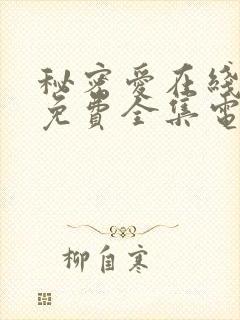 秘密愛在綫
免費全集電
柳自寒